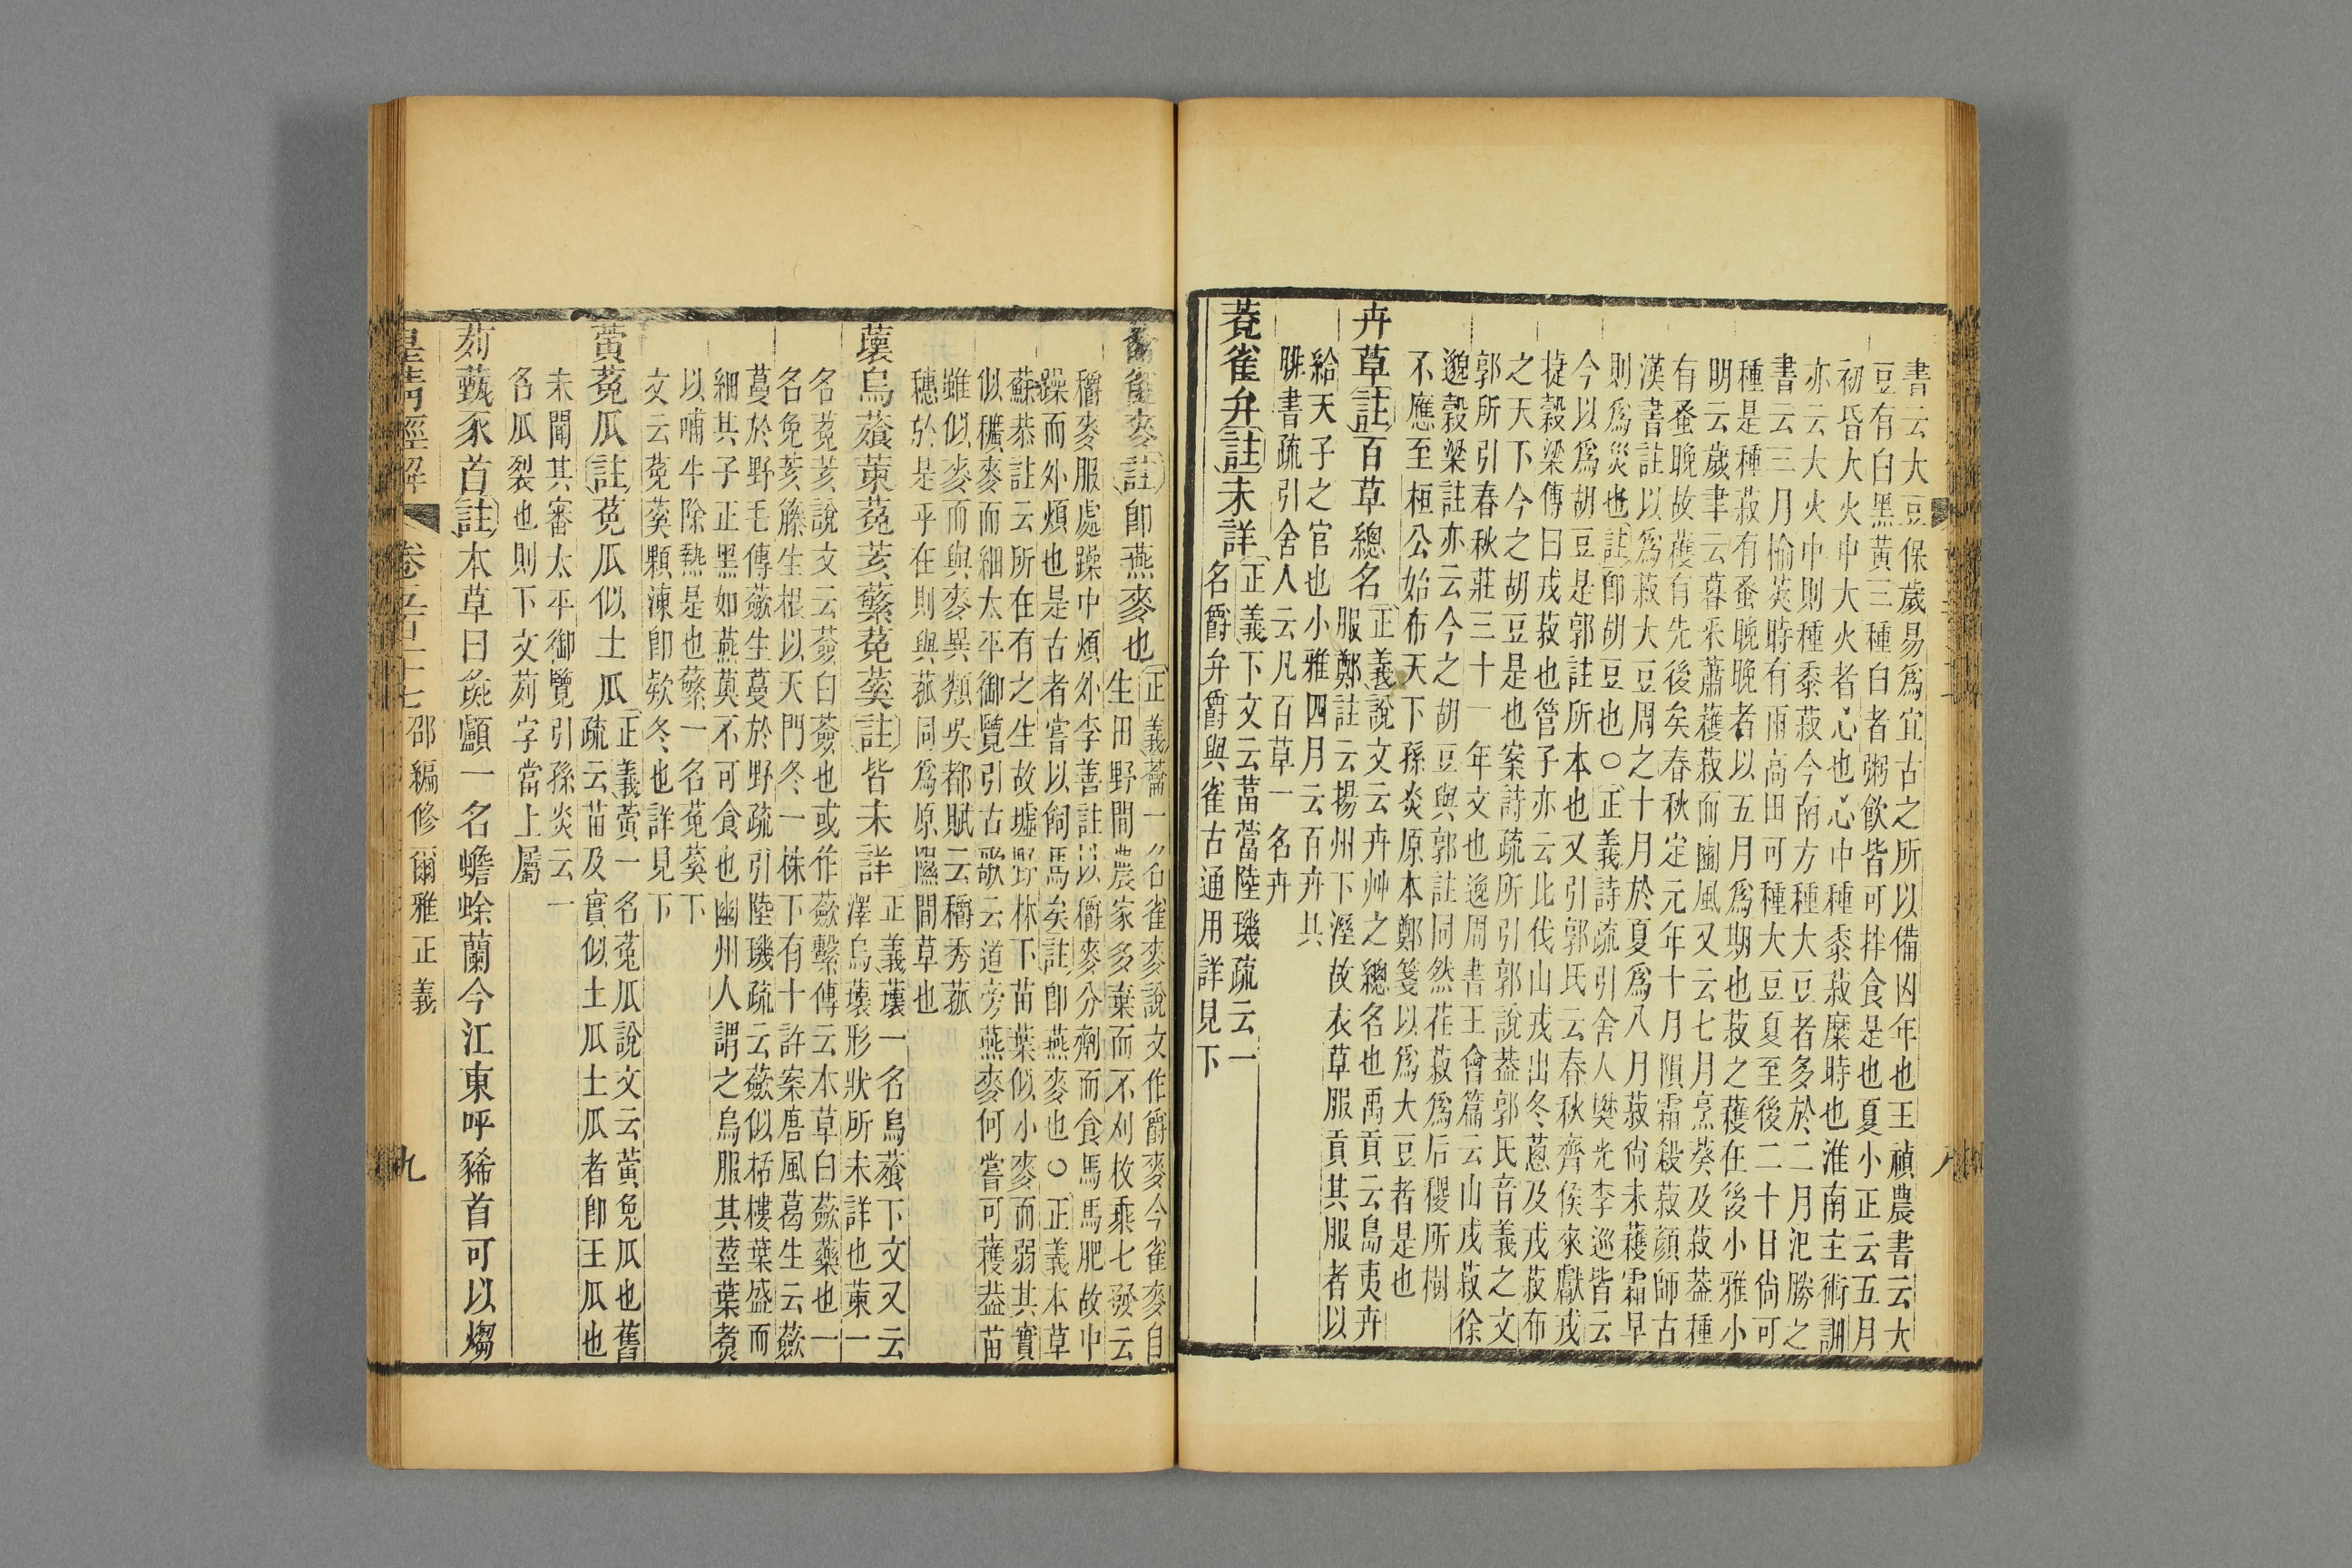 書云大豆保歲易爲宜古之所以備凶年也王禎農書云大
豆有白黑黃三種白者粥飲皆可拌食是也夏小正云五月
初昏大火中大火者心也心中種黍菽糜時也淮南主術訓
亦云大火中則種黍菽今南方種大豆者多於二月汜勝之
書云三月榆莢時有雨高田可種大豆夏至後二十日尙可
種是種菽有蚤晚晚者以五月爲期也菽之穫在後小雅小
明云歲聿云暮采蕭穫菽而豳風又云七月烹葵及菽葢種
有蚤晚故穫有先後矣春秋定元年十月隕霜殺菽顏師古
漢書註以爲菽大豆周之十月於夏爲八月菽尙未穫霜早
則爲災也註卽胡豆也○正義詩疏引舍人樊光李巡皆云
今以爲胡豆是郭註所本也又引郭氏云春秋齊侯來獻戎
捷穀梁傳曰戎菽也管子亦云北伐山戎出冬蔥及戎菽布
之天下今之胡豆是也案詩疏所引郭說葢郭氏音義之文
郭所引春秋莊三十一年文也逸周書王會篇云山戎菽徐
邈穀梁註亦云今之胡豆與郭註同然荏菽爲后稷所樹
不應至桓公始布天下孫炎原本鄭箋以爲大豆者是也
卉草註百草總名正義說文云卉艸之總名也禹貢云島夷卉
服鄭註云揚州下溼故衣草服貢其服者以
給天子之官也小雅四月云百卉具
腓書疏引舍人云凡百草一名卉
蕵雀弁註未詳正義下文云葍䔰陸璣疏云一
名爵弁爵與雀古通用詳見下
蘥雀麥註卽燕麥也正義蘥一名雀麥說文作爵麥今雀麥自
生田野間農家多棄而不刈枚乘七發云
穱麥服處躁中煩外李善註以穱麥分劑而食馬馬肥故中
躁而外煩也是古者嘗以飼馬矣註卽燕麥也○正義本草
蘇恭註云所在有之生故墟野林下苗葉似小麥而弱其實
似穬麥而細太平御覽引古歌云道旁燕麥何嘗可穫葢苗
雖似麥而與麥異類吳都賦云穱秀菰
穗於是乎在則與菰同爲原隰間草也
蘹烏薞蕀菟荄蘩菟蒵註皆未詳正義蘹一名烏薞下文又云
澤烏蘹形狀所未詳也蕀一
名菟荄說文云薟白薟也或作蘞繫傳云本草白蘞藥也一
名兔荄籐生根以天門冬一株下有十許案唐風葛生云蘞
蔓於野毛傳蘞生蔓於野疏引陸璣疏云蘞似栝樓葉盛而
細其子正黑如燕薁不可食也幽州人謂之烏服其莖葉煮
以哺牛除熱是也蘩一名菟蒵下
文云菟蒵顆涷卽欵冬也詳見下
黃菟瓜註菟瓜似土瓜正義黃一名菟瓜說文云黃兔瓜也舊
疏云苗及實似土瓜土瓜者卽王瓜也
未聞其審太平御覽引孫炎云一
名瓜裂也則下文茢字當上屬
茢薽豕首註本草曰彘顱一名蟾蜍蘭今江東呼豨首可以㷅
皇淸經解
卷五百十七 邵編修爾雅正義
九